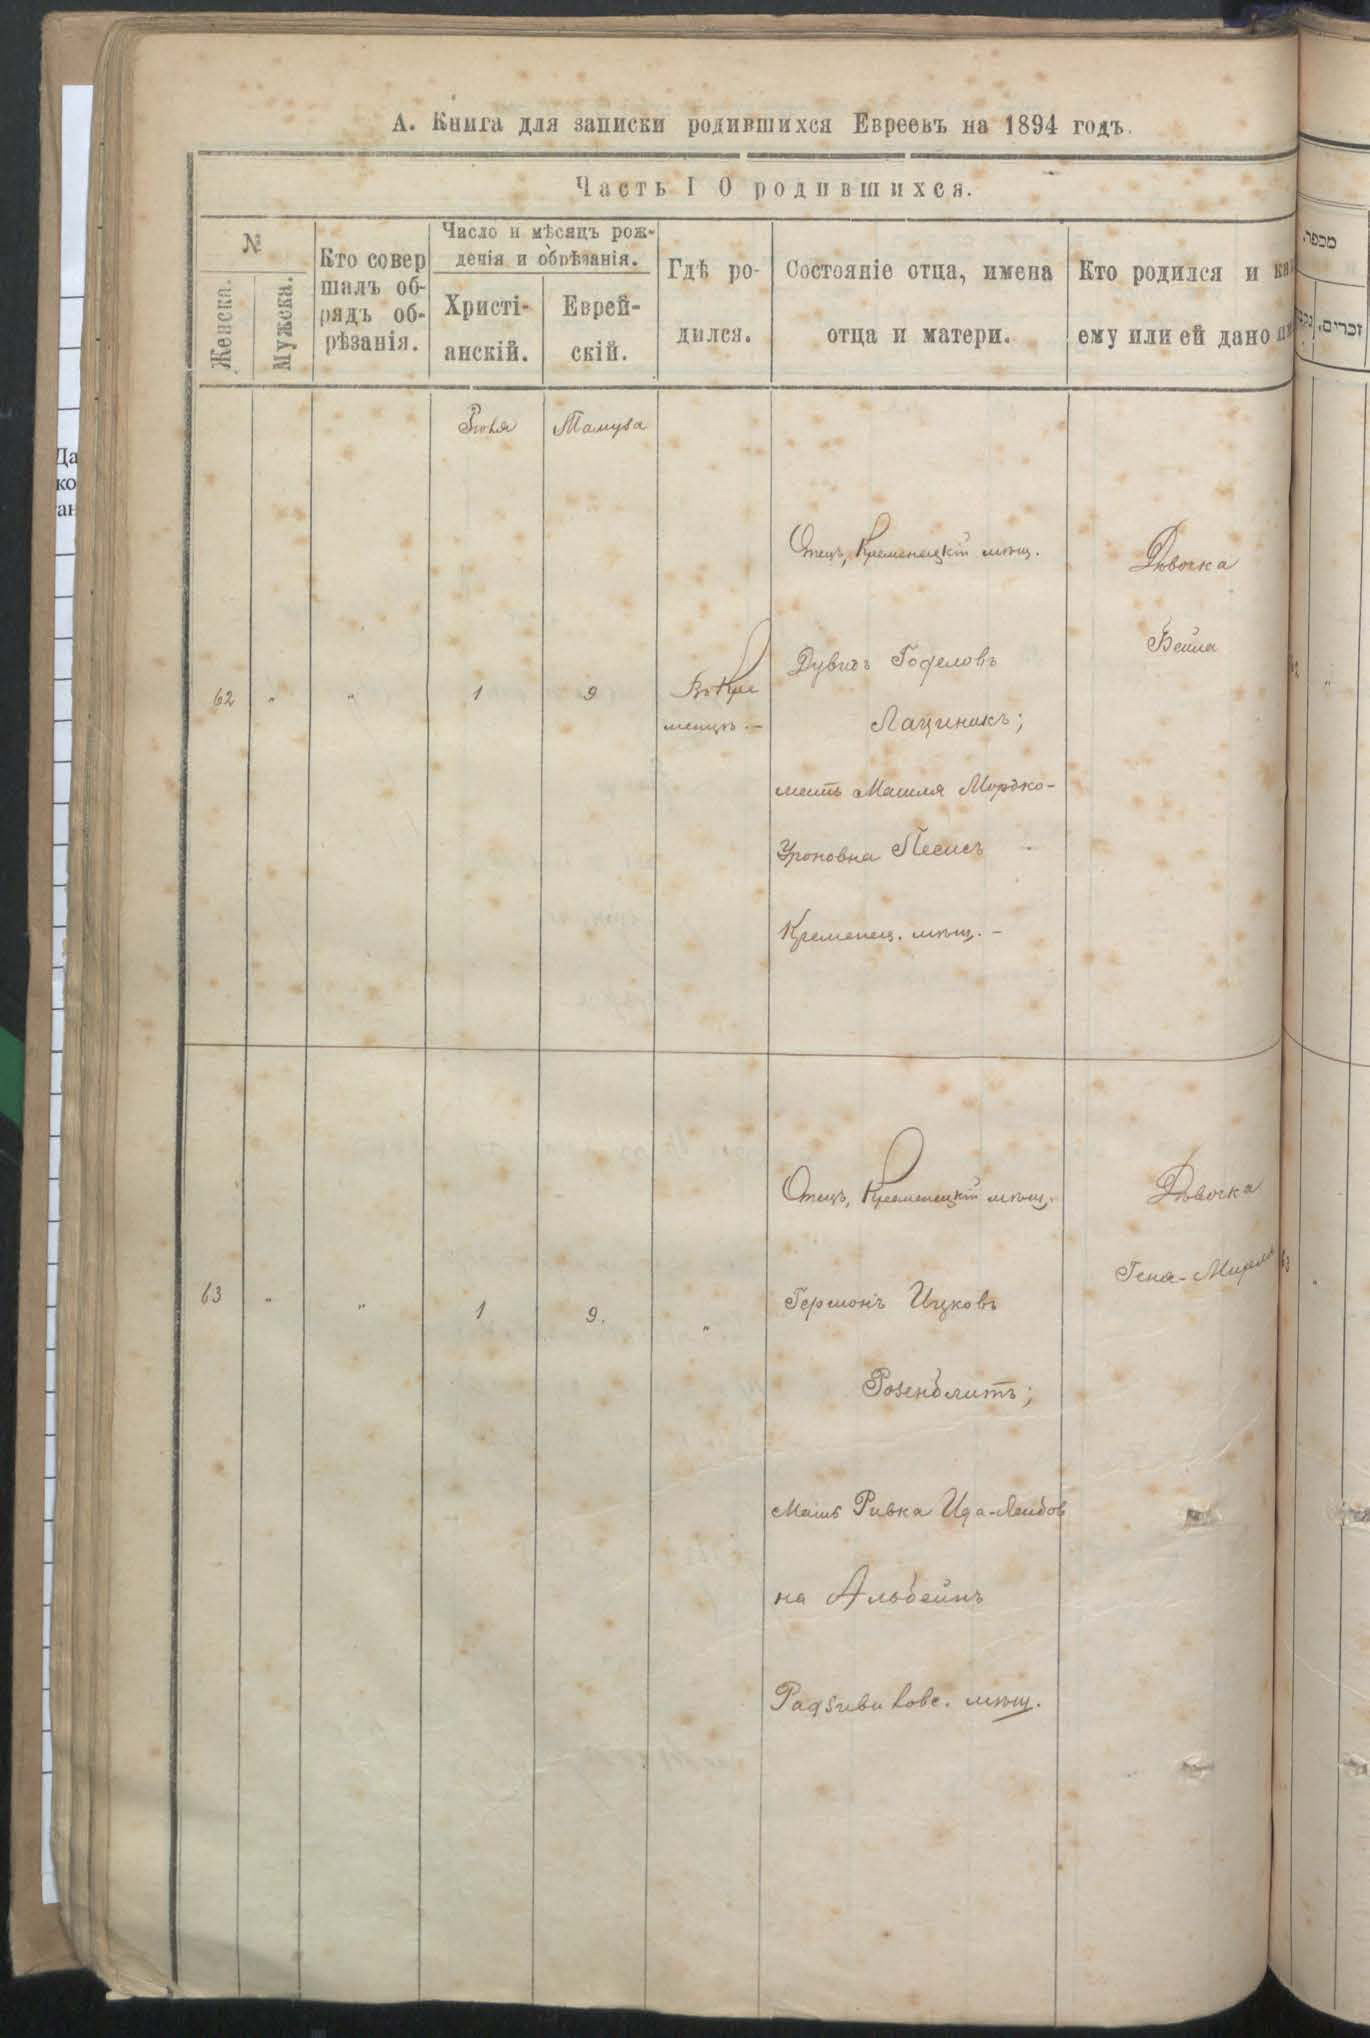 А. Книга для записки родившихся Евреевъ на 1894 годъ.
Часть I О родившихся.
№
Женска.
Мужска.
Кто совер
шалъ об-
рядъ об-
рѣзанія.
Число и мѣсяцъ рож-
денія и обрѣзанія.
Христі-
анскій.
Еврей-
скій.
Гдѣ ро-
дился.
Состояніе отца, имена
отца и матери.
Кто родился и
ему или ей дано
מספר.
זכרים.
Да
ко
ан
Іюля
Тамуза
62 " " 1 9
Въ Кре
менцѣ. —
Отецъ, Кременецкій мѣщ.
Дувидъ Годеловъ
Лациникъ;
мать Машля Мордко-
Уроновна Песисъ
Кременец. мѣщ. —
Дѣвочка
Бейла
63 " " 1 9. "
Отецъ, Кременецкій мѣщ.
Гермонъ Ицковъ
Розенблитъ;
Мать Ривка Ида-Лейбов
на Альбейнъ
Радзивиловс. мѣщ.
Дѣвочка
Геня-Мирля
63 "